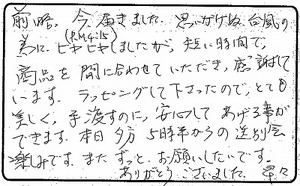 前略、今届きました。思いがけぬ台風の
(P.M4:15)
為に、ヒヤヒヤしましたが、短い時間で、
商品を間に合わせていただき、感謝して
います。ラッピングして下さったので、とても
美しく、手渡すのに、安心してあげる事が
できます。本日夕方5時半からの送別会
楽しみです。またずっと、お願いしたいです。
ありがとうございました。早々